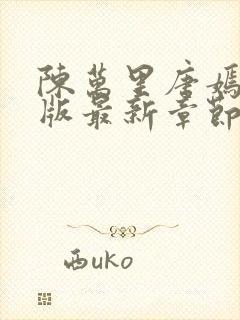 陳萬里唐嫣
版最新章節
西uko